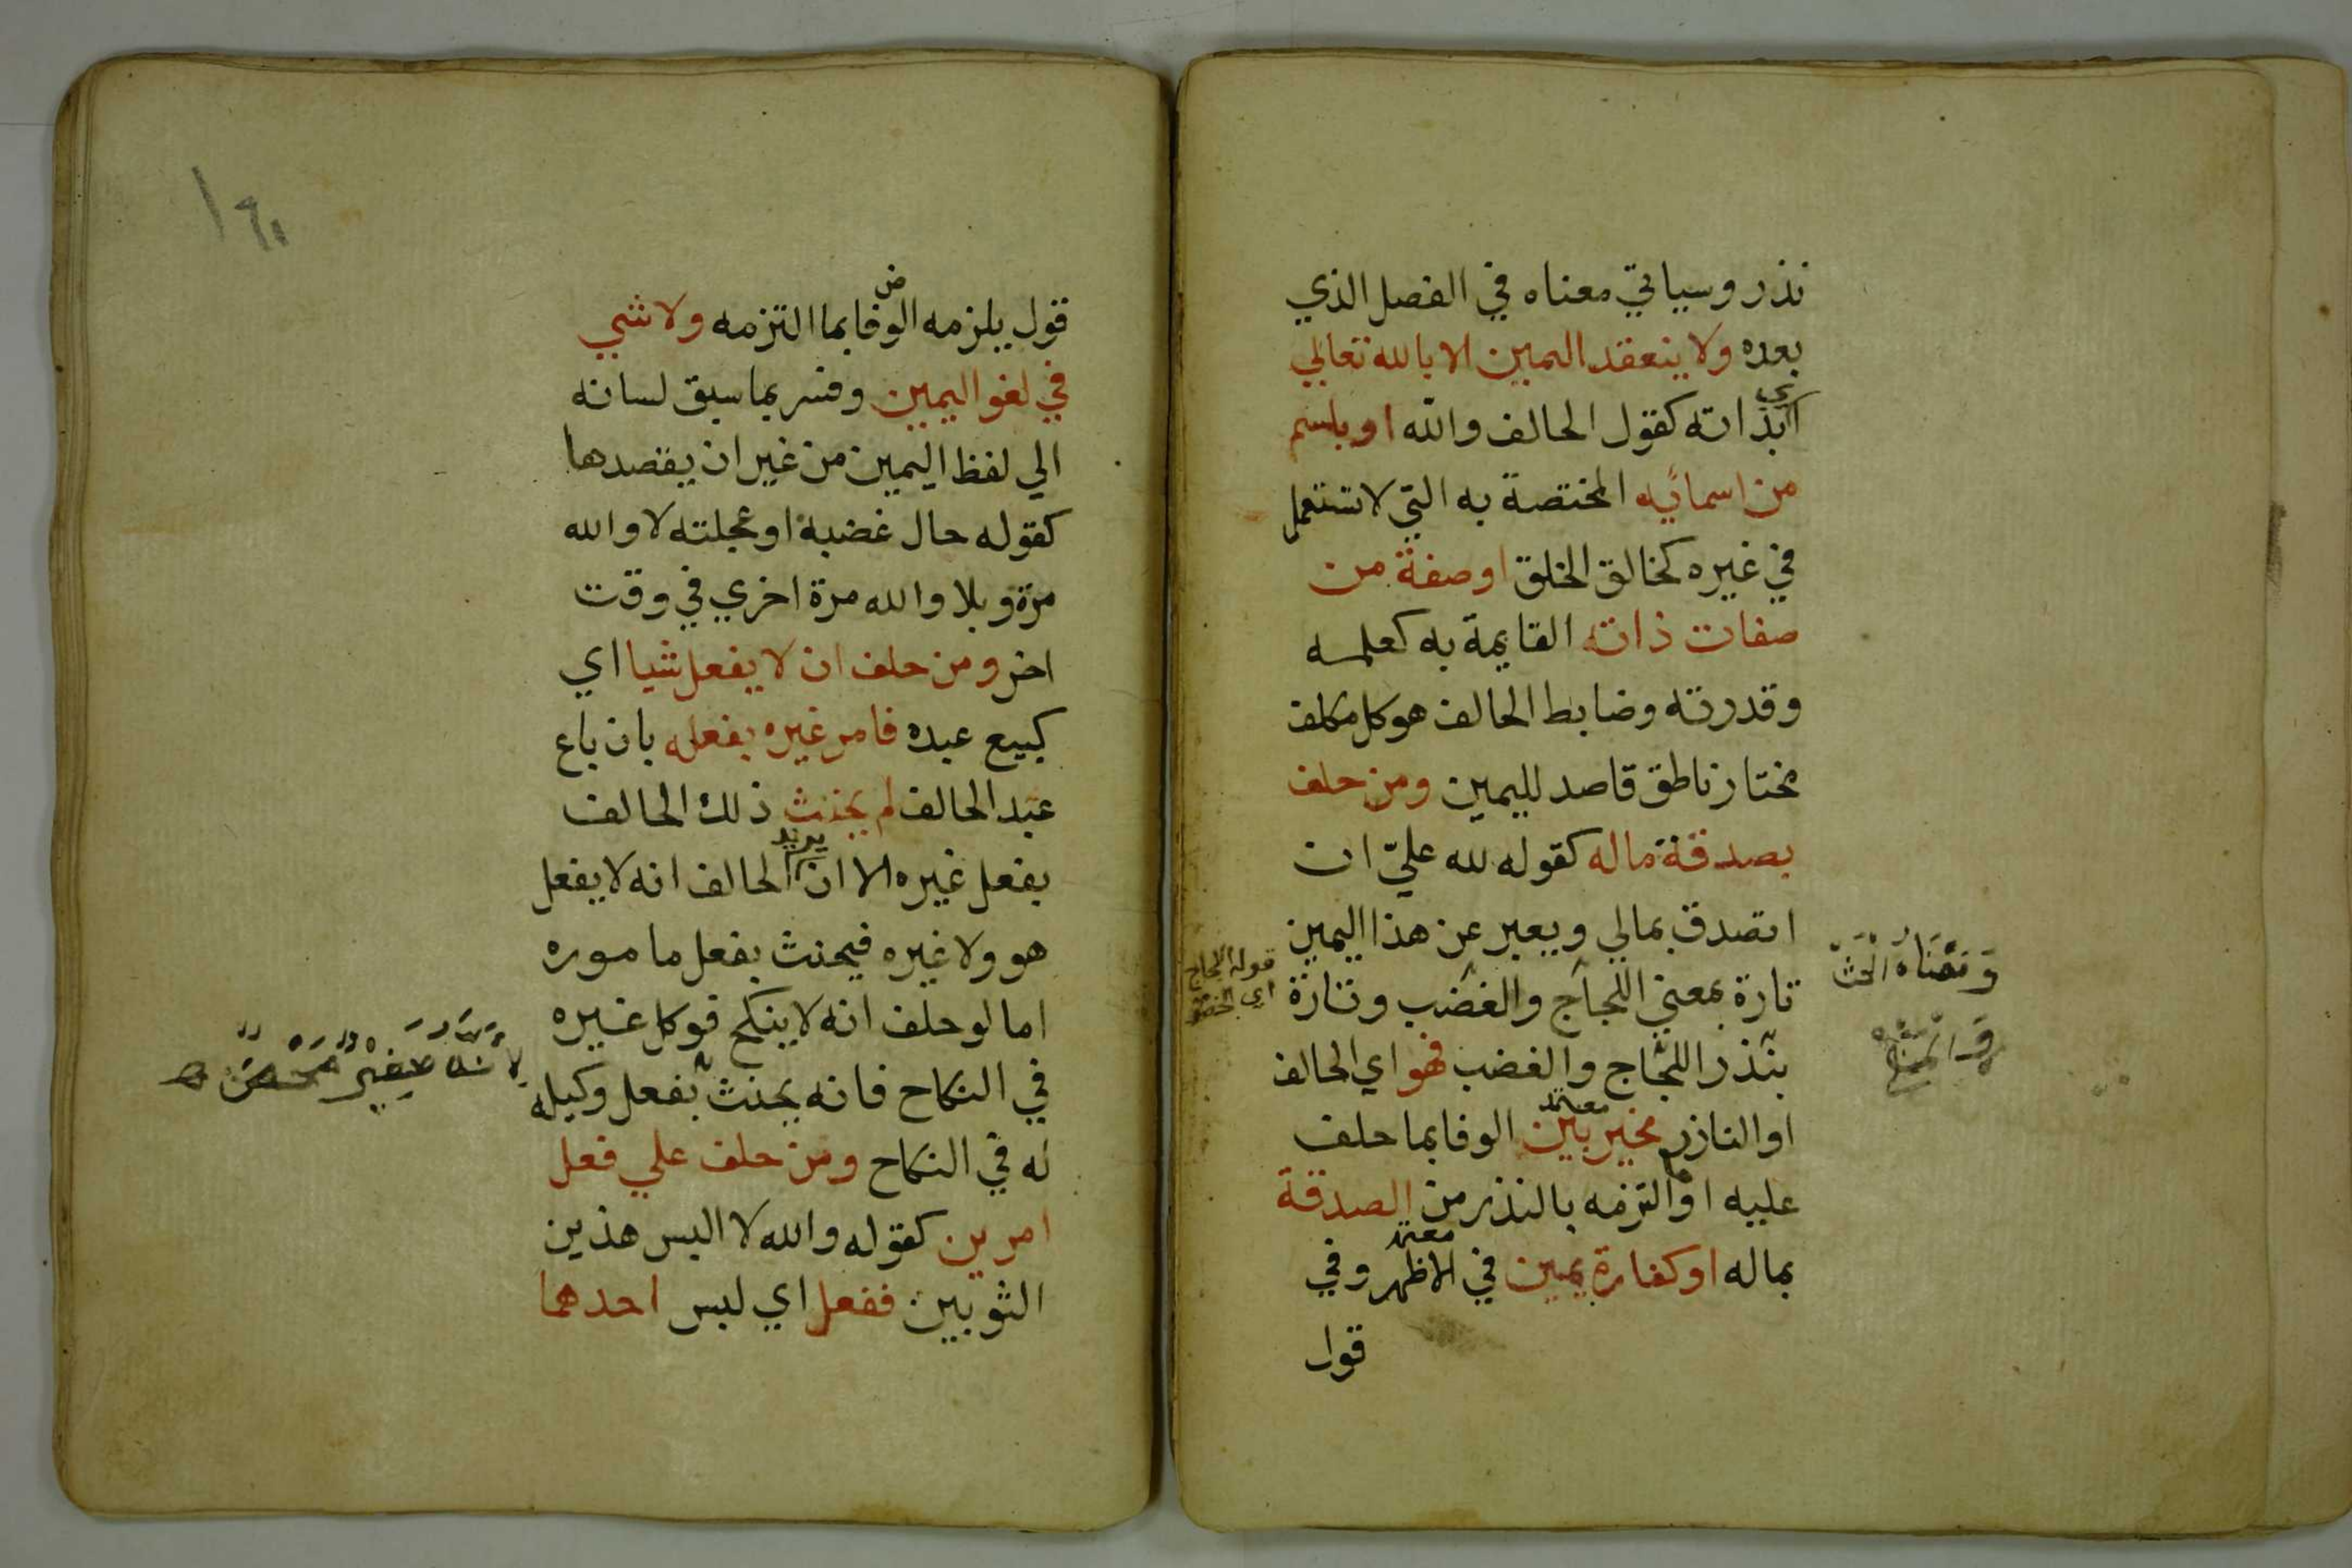 نذر وسياتي معناه في الفصل الذي
بعده ولا ينعقد اليمين الا بالله تعالي
اي بذاته كقول الحالف والله او باسم
من اسمائيه المختصة به التي لا تستعمل
في غيره كخالق الخلق او صفة من
صفات ذاته القايمة به كعلمه
وقدرته وضابط الحالف هو كل مكلف
مختار ناطق قاصد لليمين ومن حلف
بصدقة ماله كقوله لله عليّ ان
اتصدق بمالي ويعبر عن هذا اليمين
تارة بمعني اللجاج والغضب وتارة
بنذر اللجاج والغضب فهو اي الحالف
او الناذر مخير بين الوفا بما حلف
معتمد
عليه او التزمه بالنذر من الصدقة
بماله او كفارة يمين في الاظهر وفي
معتمد
قول
قوله اللجاج
اي
ض
قول يلزمه الوفا بما التزمه ولا شي
في لغو اليمين وفسر بما سبق لسانه
الي لفظ اليمين من غير ان يقصدها
كقوله حال غضبه او عجلته لا والله
مرة وبلا والله مرة اخري في وقت
اخر ومن حلف ان لا يفعل شيا اي
كبيع عبده فامر غيره بفعله بان باع
عبد الحالف لم يحنث ذلك الحالف
بفعل غيره الا ان يريد الحالف انه لا يفعل
هو ولا غيره فيحنث بفعل ماموره
اما لو حلف انه لا ينكح فوكل غيره
في النكاح فانه يحنث بفعل وكيله
له في النكاح ومن حلف علي فعل
امرين كقوله والله لا البس هذين
الثوبين ففعل اي لبس احدهما
لانه سفير محض
١٦٠